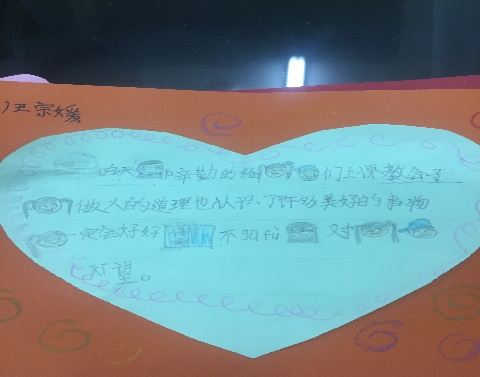 汪宗媛
白天 辛勤的给 们上课教会了
做人的道理也认识了许多美好的事物
一定会好好 不gū fù 对
的 望。